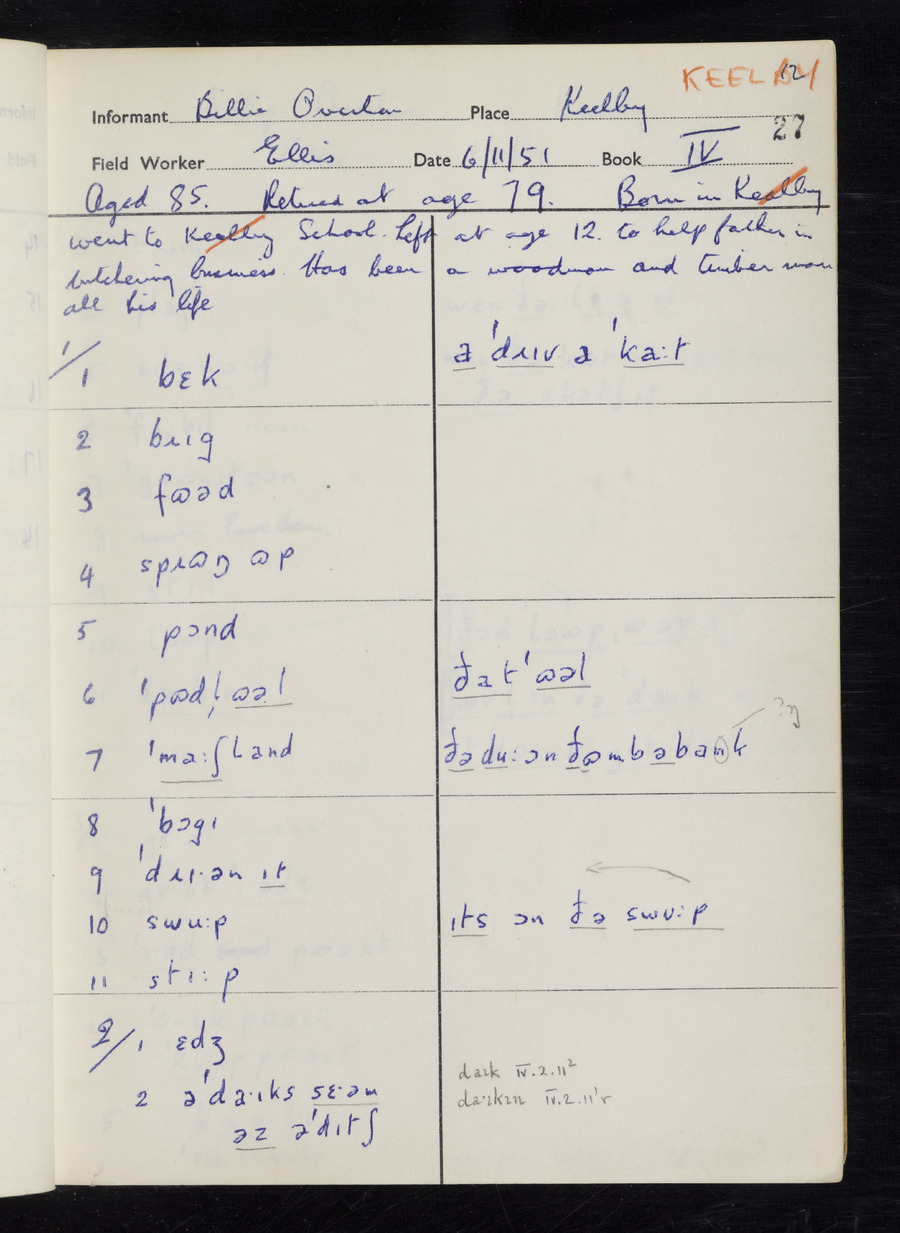 KEELBY 12
Informant Billie Overton Place Keelby
27
Field Worker Ellis Date 6/11/51 Book IV
Aged 85. Retired at age 79. Born in Keelby
went to Keelby School. Left at age 12. to help father in
butchering business. Has been a woodman and timber man
all his life
1/
1 bɛk
ə ˈdɹɪv ə ˈka:t
2 bɹɪg
3 fɷəd
4 spɹɷŋ ɷp
5 pɔnd
6 ˈpɷdl̩ ɷəl
ðat ˈɷəl
7 ˈma:ʃland
ðədu:ən ðəmbəbank ?ŋ
8 ˈbɔgɪ
9 ˈdɹɪ·ən ɪt
10 swu:p
ɪts ɔn ðə swʋ:p
11 stɪ:p
2/ 1 ɛdʒ
2 əˈda·ɪks sɛ·əm
əz əˈdɪtʃ
dark IV.2.11²
IV.2.11'r